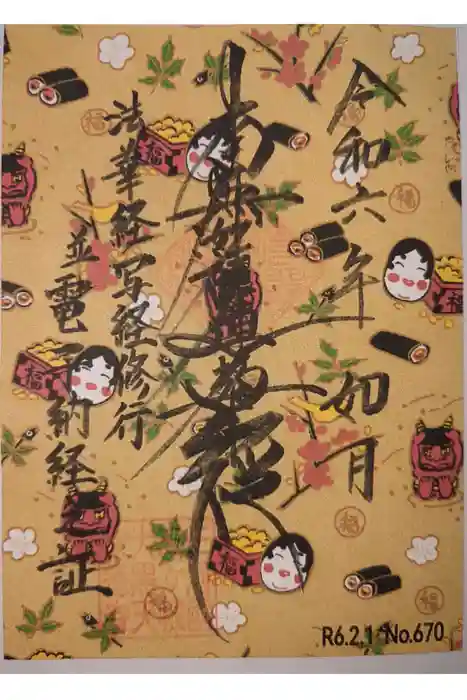 令和六年如月
南無妙法蓮華経
法華経写経修行
納経之証
R6.2.1 No.670